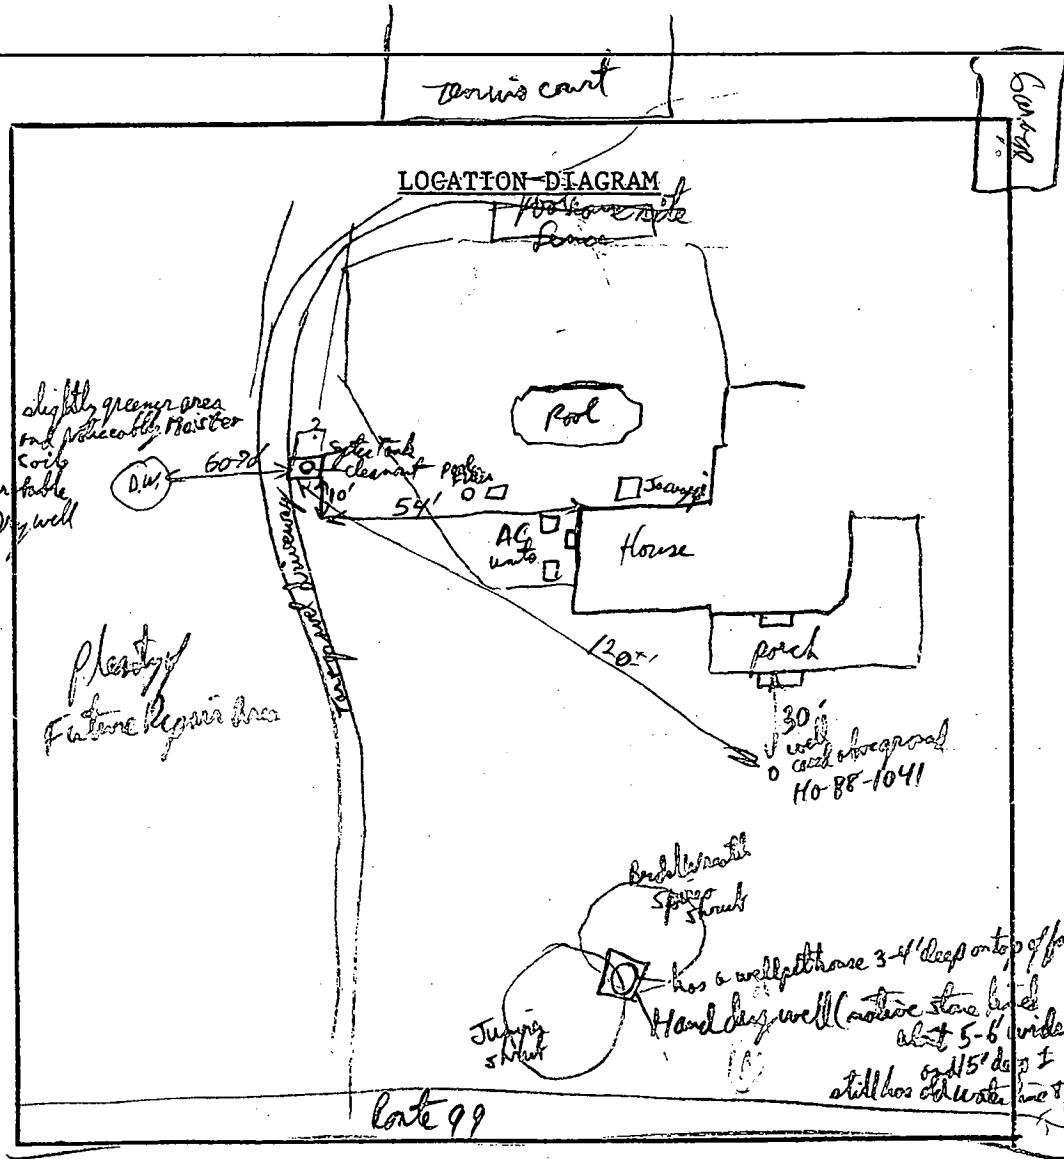 Tennis court
Garage
LOCATION DIAGRAM
Poolhouse site
fence
slightly greener area
and noticeably moister
soil
probable
Drywell
D.W.
60-70'
Septic Tank
cleanout
10'
54'
Pool
Pool filter
Jacuzzi
AC
units
House
driveway
porch
120±'
30'
well
cased aboveground
HO-88-1041
Plenty of
Future Repair Area
Bridal Wreath
Spirea
shrub
has a wellpithouse 3-4' deep on top of
Hand dug well (native stone lined
about 5-6' wide
and 15' deep ±
still has old water line
shrub
Route 99